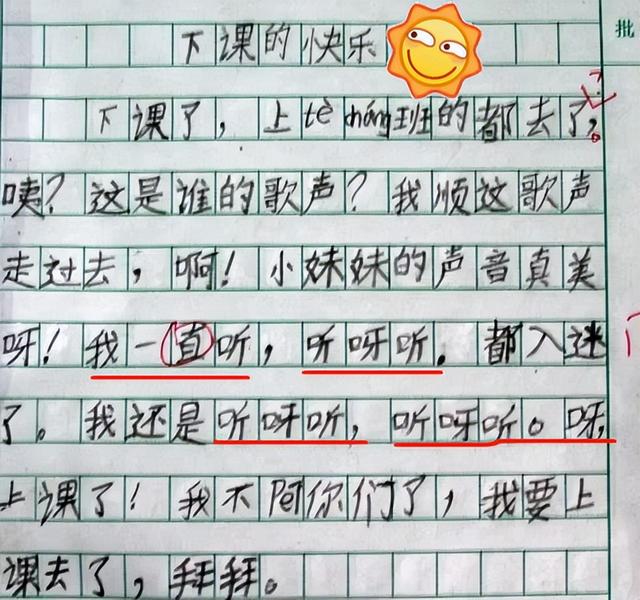 下课的快乐
批
下课了，上tè cháng班的都去了。
咦？这是谁的歌声？我顺这歌声
走过去，啊！小妹妹的声音真美
呀！我一直听，听呀听。都入迷
了。我还是听呀听，听呀听。呀，
上课了！我不阿你们了，我要上
课去了，拜拜。